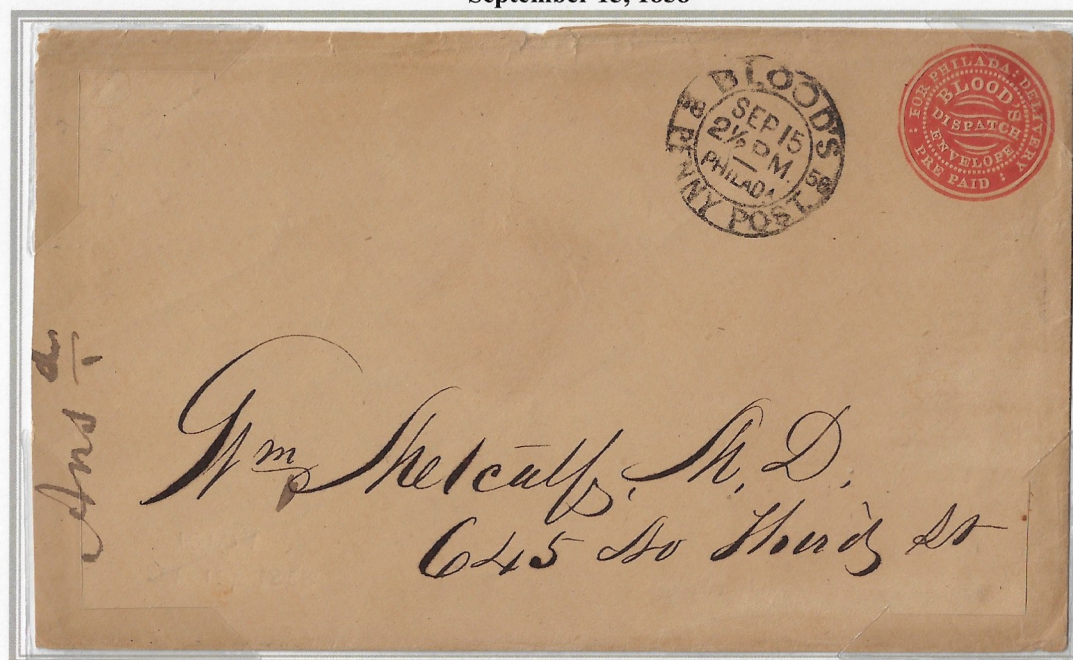 September 15, 1858
BLOOD'S
& PENNY POST.
SEP 15
2½ P.M.
PHILADA
58
: FOR PHILADA: DELIVERY
PRE PAID :
BLOOD'S
DISPATCH
ENVELOPE
Ansd
Wm Metcalf, M.D.
645 So Third St